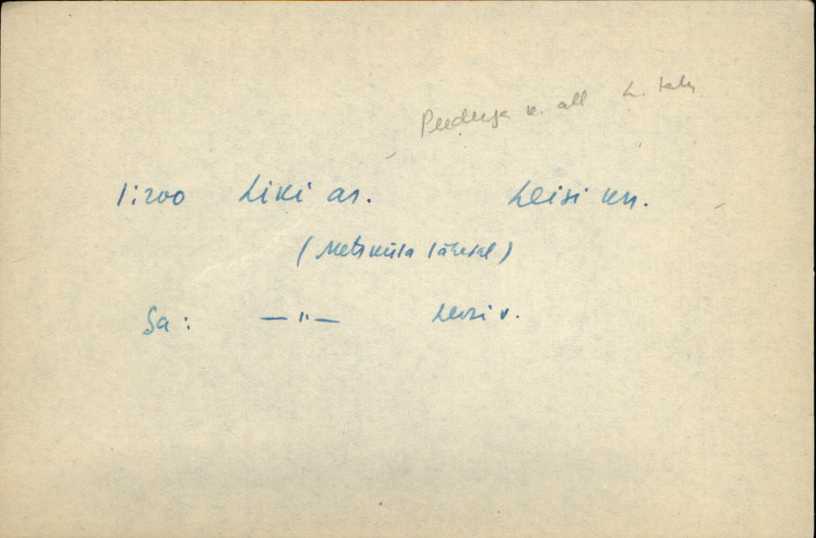 Peeduse k. all L. talu
1:200 Liki as. Leisi kn.
(Metsküla lähedal)
Sa: —"— Leisi v.